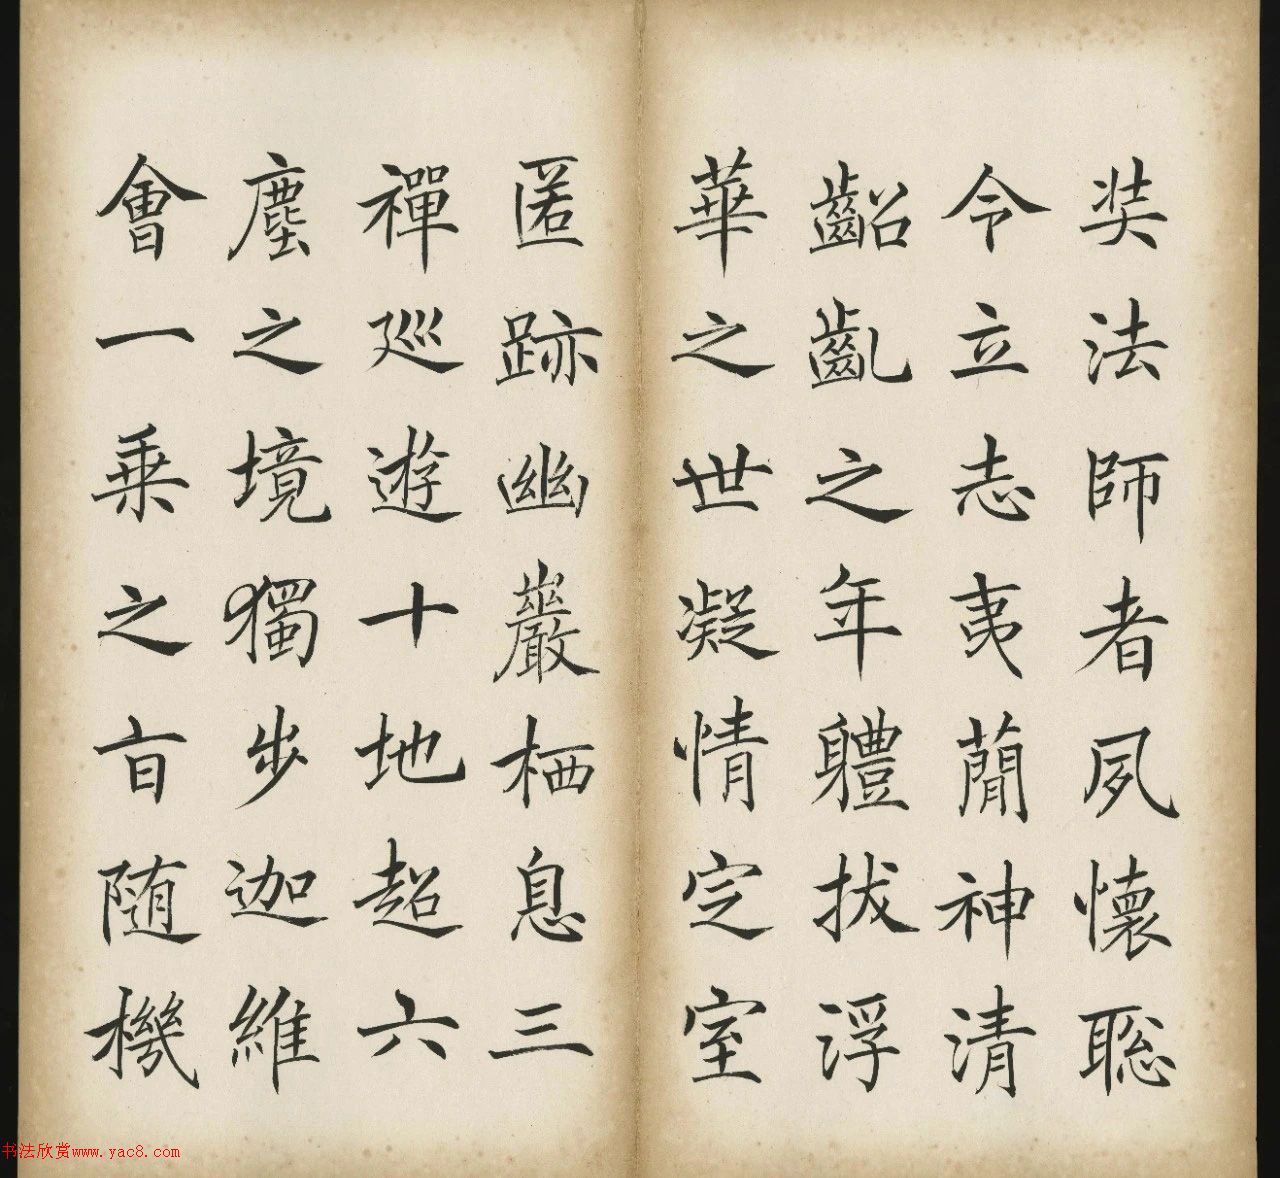 奘法師者夙懷聡
令立志夷蕳神清
齠齓之年軆拔浮
華之世凝情定室
匿跡幽巖栖息三
禪巡遊十地超六
塵之境獨步迦維
會一乗之㫖随機
书法欣赏www.yac8.com